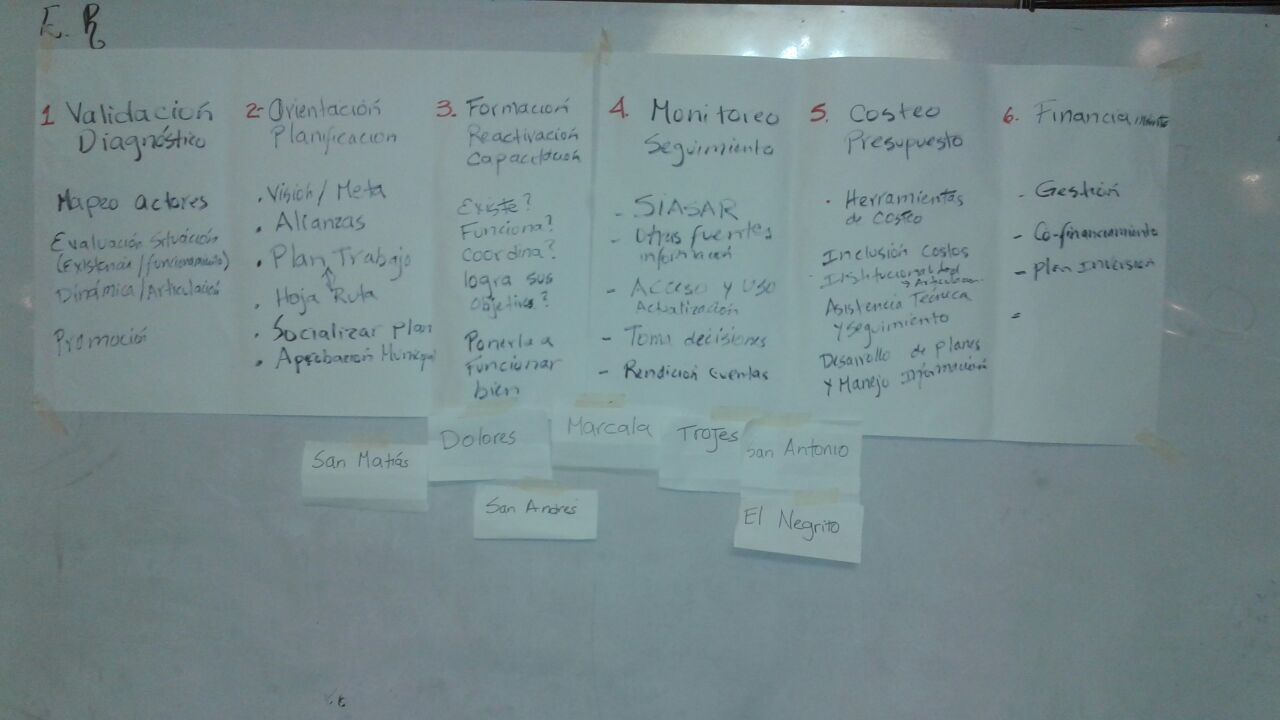 E. R
1 Validación
Diagnóstico
Mapeo actores
Evaluación Situación
(Existencia / funcionamiento)
Dinámica / Articulación
Promoción
2- Orientación
Planificacion
• Visión / Meta
• Alianzas
• Plan Trabajo
• Hoja Ruta
• Socializar plan
• Aprobación Municipal
3. Formación
Reactivación
Capacitación
Existe?
Funciona?
Coordina?
logra sus
objetivos?
Ponerla a
Funcionar
bien
4. Monitoreo
Seguimiento
- SIASAR
- Otras fuentes
información
- Acceso y Uso
Actualización
- Toma decisiones
- Rendición cuentas
5. Costeo
Presupuesto
• Herramientas
de costeo
Inclusión costos
Institucionalidad
Asistencia Técnica
y seguimiento
Desarrollo de planes
y Manejo Información
6. Financiamiento
- Gestión
- Co-financiamiento
- plan Inversión
-
San Matías
Dolores
Marcala
Trojes
San Antonio
San Andres
El Negrito